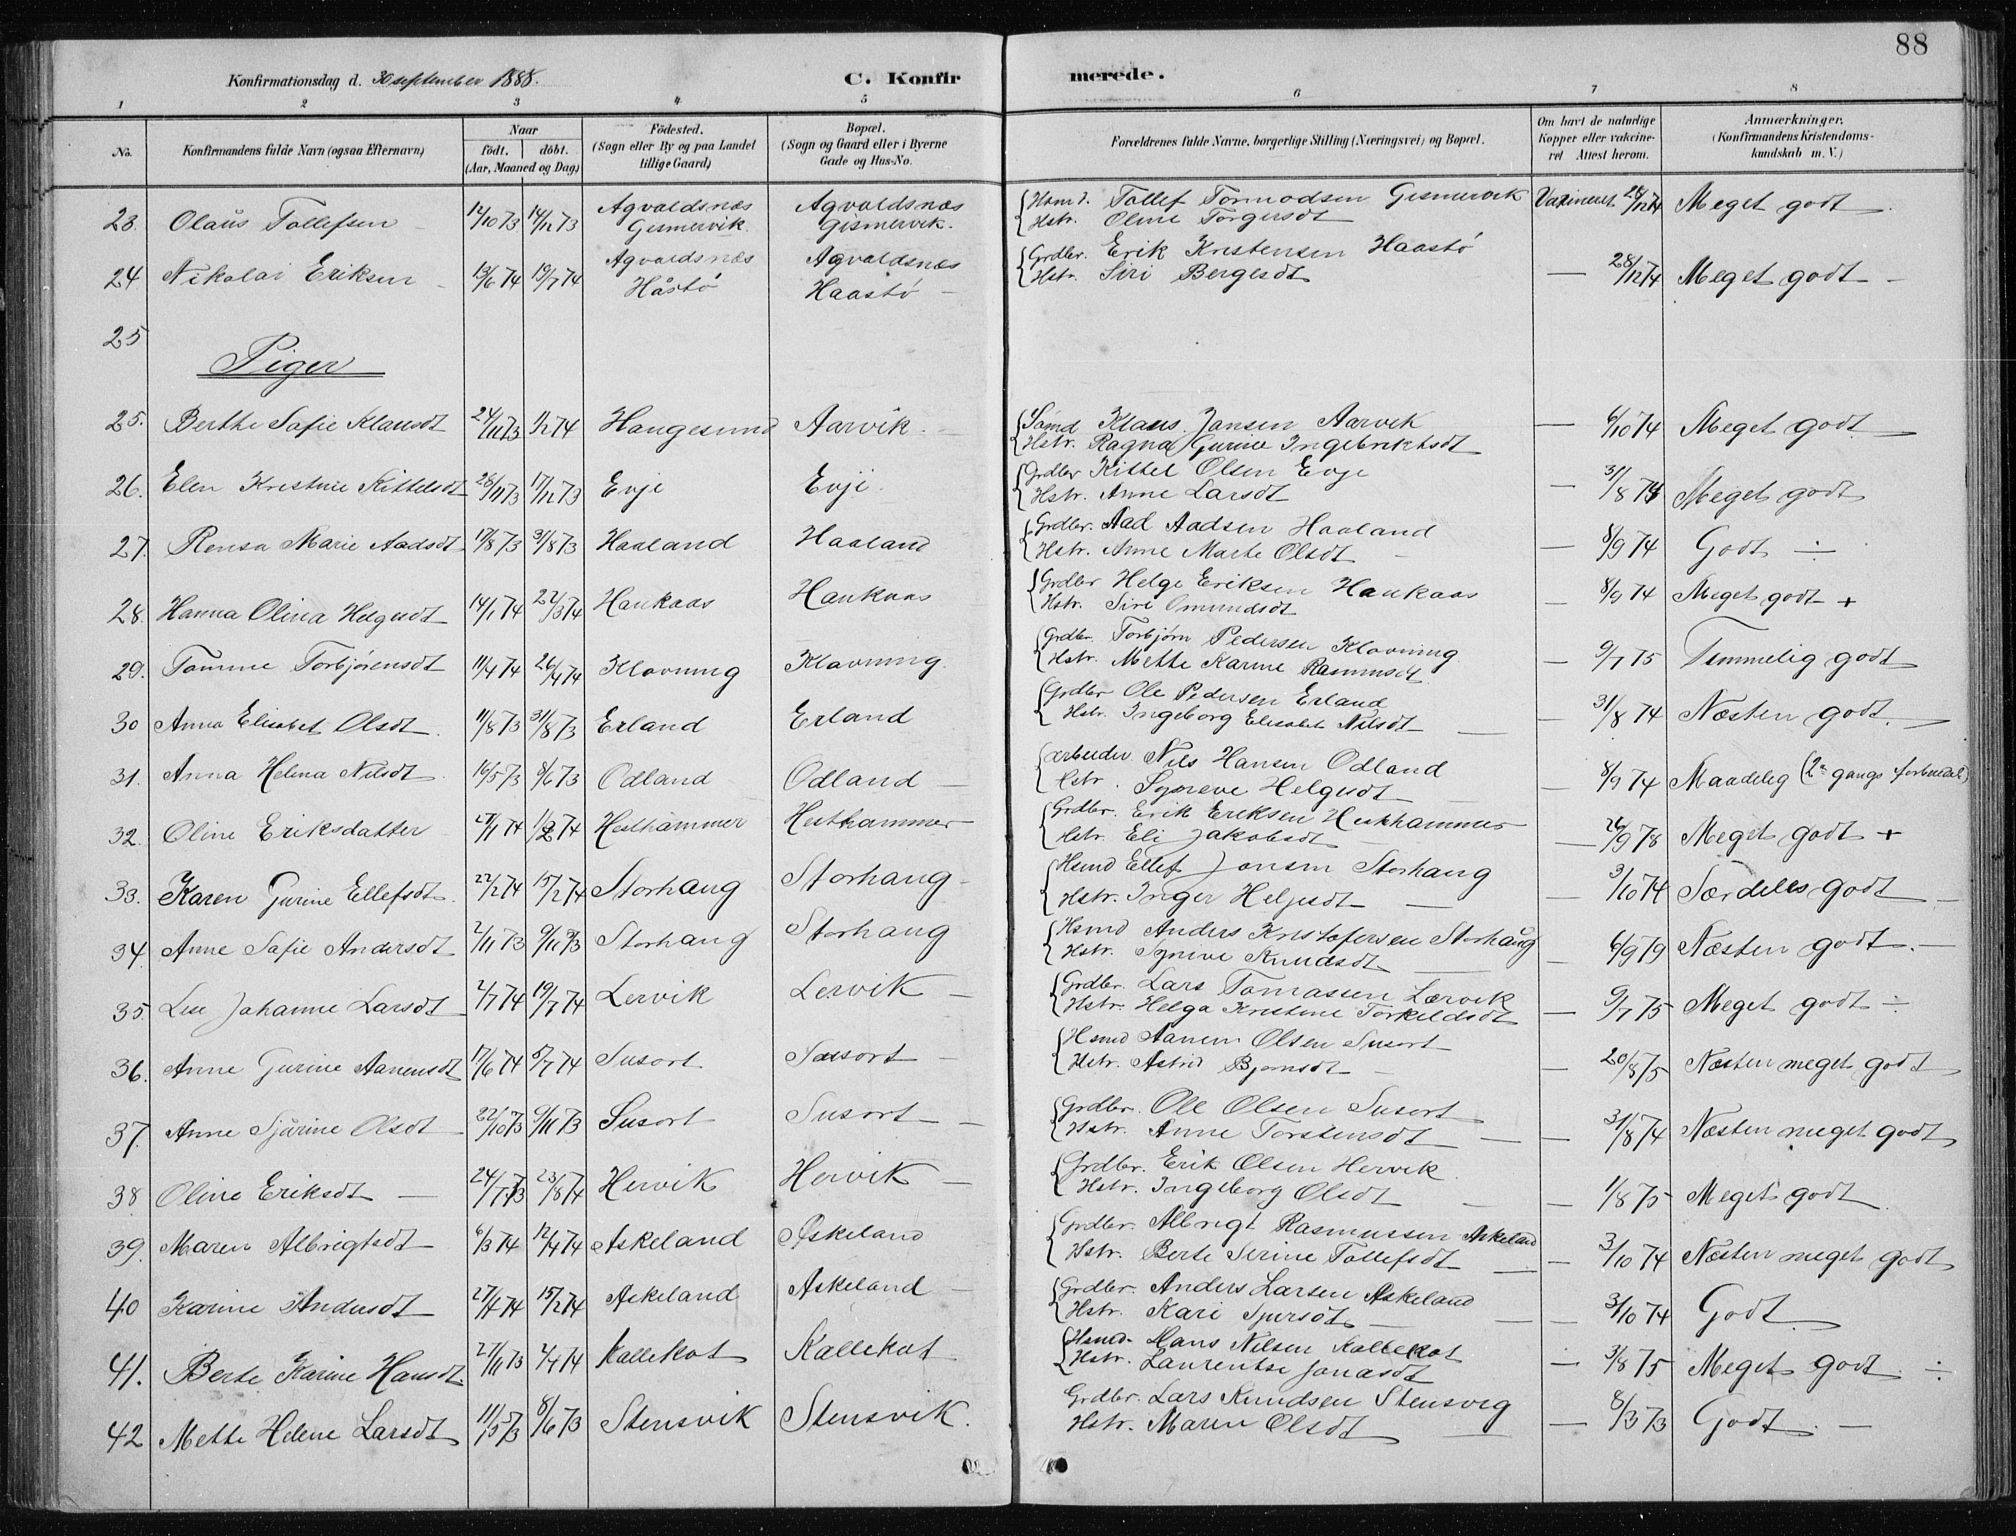 88
Konfirmationsdag d. 30 september 1888.
C. Konfir merede.
1 2 3 4 5 6 7 8
No. Konfirmandens fulde Navn (ogsaa Efternavn) Naar födt. döbt. (Aar, Maaned og Dag) Födested. (Sogn eller By og paa Landet tillige Gaard) Bopæl. (Sogn og Gaard eller i Byerne Gade og Hus-No. Forældrenes fulde Navne, borgerlige Stilling (Næringsvei) og Bopæl. Om havt de naturlige Kopper eller vakcineret Attest herom. Anmærkninger. (Konfirmandens Kristendomskundskab m. V.)
23. Olaus Tollefsen 14/10 73 14/12 73 Agvaldsnæs Gismervik. Agvaldsnæs Gismervik. Hsmd. Tollef Tormodsen Gismervik Hstr. Oline Torgersdt Vaxineret 28/12 74 Meget godt
24 Nikolai Eriksen 13/6 74 19/7 74 Agvaldsnæs Håstø Agvaldsnæs Haastø Grdbr. Erik Kristensen Haastø Hstr. Siri Bergesdt — 28/12 74 Meget godt
25
Piger
25. Berthe Safie Klausdt 24/11 73 1/2 74 Haugesund Aarvik. Klaus Jansen Aarvik Hstr. Ragna Gurine Ingebriktsdt — 6/10 74 Meget godt
26. Elen Kristine Kittelsdt 28/11 73 17/12 73 Evje Evje Grdbr Kittel Olsen Evje Hstr. Anne Larsdt — 31/8 74 Meget godt
27. Rensa Marie Aadsdt 17/8 73 31/8 73 Haaland Haaland Grdbr. Aad Aadsen Haaland Hstr. Anne Marte Olsdt — 8/9 74 Godt ÷
28. Hanna Olina Helgesdt 14/1 74 22/3 74 Haukaas Haukaas Grdbr Helge Eriksen Haukaas Hstr. Siri Omundsdt — 8/9 74 Meget godt +
29. Tomine Torbjørensdt 11/4 74 26/4 74 Klovning Klovning. Grdbr. Torbjørn Pedersen Klovning Hstr. Mette Karine Rasmusdt. — 9/7 75 Temmelig godt
30 Anna Elisabet Olsdt. 11/8 73 31/8 73 Erland Erland Grdbr Ole Pedersen Erland Hstr. Ingeborg Elisabet Nilsdt — 31/8 74 Næsten godt.
31. Anna Helena Nilsdt. 16/5 73 8/6 73 Odland Odland Arbeider Nils Hansen Odland Hstr. Synneve Helgesdt — 8/9 74 Maadelig (2en gangs forberedel)
32. Oline Eriksdatter 27/1 74 1/2 74 Hesthammer Hesthammer Grdbr. Erik Eriksen Hesthammer Hstr. Eli Jakobsdt — 26/9 78 Meget godt +
33. Karen Gurine Ellefsdt. 22/2 74 15/2 74 Storhaug Storhaug Hsmd Ellef Jonsen Storhaug Hstr. Inger Heljesdt — 3/10 74 Særdeles godt
34. Anne Safie Andersdt 2/11 73 9/11 73 Storhaug Storhaug Hsmd Anders Kristofersen Storhaug Hstr. Syneve Knudsdt — 6/9 79 Næsten godt.
35. Lise Johanne Larsdt 2/7 74 19/7 74 Lervik Lervik Grdbr. Lars Tomassen Lærvik Hstr. Helga Kristine Torkeldsdt — 9/7 75 Meget godt ÷
36. Anne Gurine Aanensdt 17/6 74 5/7 74 Susort Susort Hsmd Aanen Olsen Susort Hstr. Astrid Bjørnsdt — 20/8 75 Næsten meget godt
37. Anne Sjurine Olsdt 22/10 73 9/11 73 Susort Susort Grdbr. Ole Olsen Susort Hstr. Anne Torstensdt — 31/8 74 Næsten meget godt
38 Oline Eriksdt 24/7 73 23/8 74 Hervik Hervik Grdbr. Erik Olsen Hervik Hstr. Ingeborg Olsdt — 1/8 75 Meget godt
39. Maren Albrigtsdt 6/3 74 12/4 74 Askeland Askeland Grdbr. Albrigt Rasmussen Askeland Hstr. Berte Serine Tollefsdt — 3/10 74 Næsten meget godt
40 Karine Andersdt 27/1 74 15/2 74 Askeland Askeland Grdbr. Anders Larsen Askeland Hstr. Kari Sjursdt — 3/10 74 Godt
41. Berte Karine Hansdt. 27/11 73 2/4 74 Kallekot Kallekot Hsmd. Hans Nilsen Kallekot Hstr. Laurentse Jonasdt — 3/8 75 Meget godt ÷
42 Mette Helene Larsdt 11/5 73 8/6 73 Stensvik Stensvik. Grdbr. Lars Knudsen Stensvig Hstr. Maren Olsdt — 8/3 73 Godt